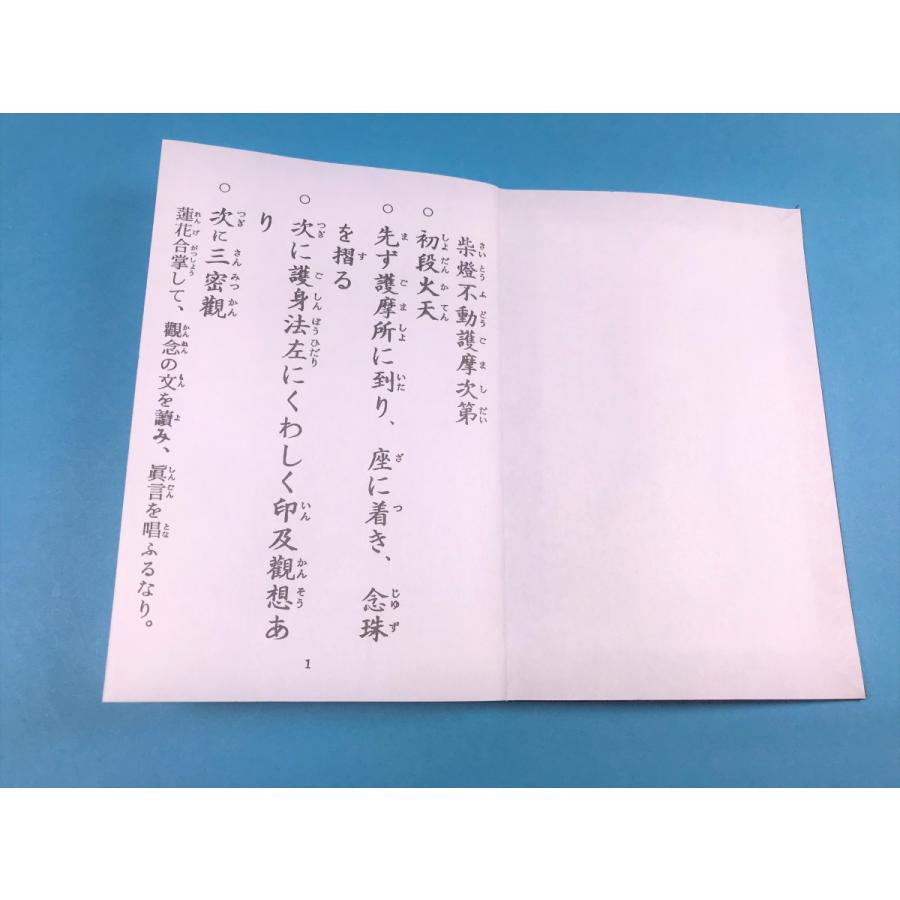 柴燈不動護摩次第
○初段火天
○先ず護摩所に到り、座に着き、念珠
を摺る
○次に護身法左にくわしく印及觀想あ
り
○次に三密觀
蓮花合掌して、觀念の文を讀み、眞言を唱ふるなり。
1